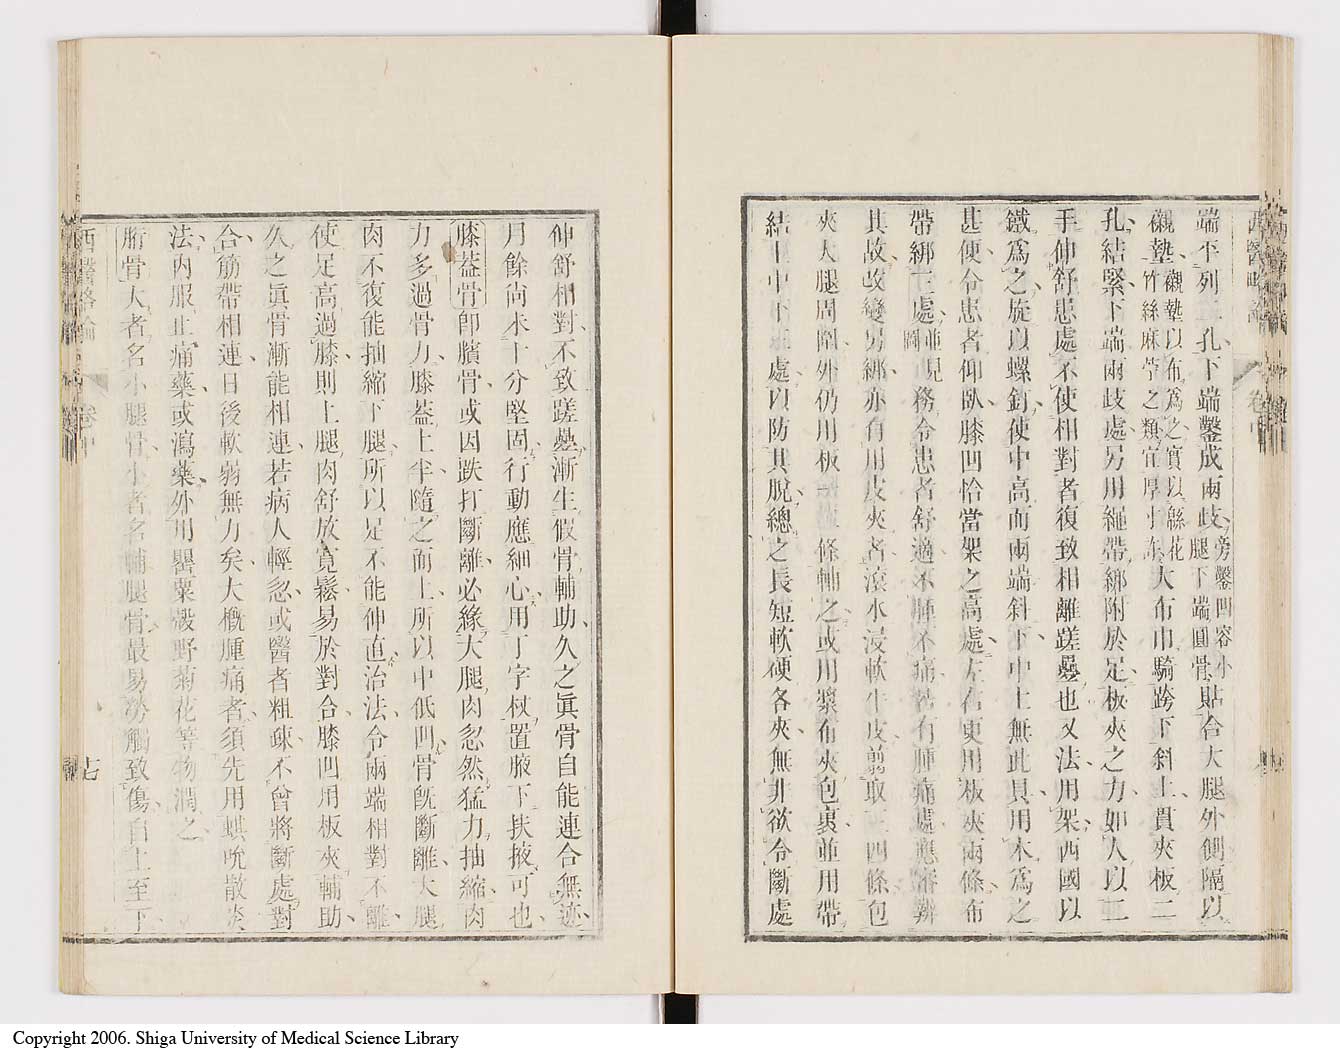 西醫略論
卷中
端平列二孔下端鑿成兩歧旁鑿凹容小腿下端圓骨貼合大腿外側隔以
襯墊襯墊以布為之實以緜花竹絲麻苧之類宜厚大布巾騎跨下斜上貫夾板二
孔結緊下端兩歧處另用繩帶綁附於足板夾之力如人以二
手伸舒患處不使相對者復致相離蹉疊也又法用架西國以
鐵為之旋以螺釘使中高而兩端斜下中土無此具用木為之
甚便令患者仰臥膝凹恰當架之高處左右更用板夾兩條布
帶綁三處並現圖務令患者舒適不腫不痛若有腫痛處應審辨
其故改變另綁亦有用皮夾者滾水浸軟牛皮剪取三四條包
夾大腿周圍外仍用板條輔之或用漿布夾包裹並用帶
結上中下三處以防其脫總之長短軟硬各夾無非欲令斷處
伸舒相對不致蹉疊漸生假骨輔助久之眞骨自能連合無迹
月餘尚未十分堅固行動應細心用丁字杖置腋下扶掖可也
膝蓋骨卽臏骨或因跌打斷離必緣大腿肉忽然猛力抽縮肉
力多過骨力膝蓋上半隨之而上所以中低凹骨旣斷離大腿
肉不復能抽縮下腿所以足不能伸直治法令兩端相對不離
使足高過膝則上腿肉舒放寬鬆易於對合膝凹用板夾輔助
久之眞骨漸能相連若病人輕忽或醫者粗疎不曾將斷處對
合筋帶相連日後軟弱無力矣大槪腫痛者須先用蜞吮散炎
法內服止痛藥或瀉藥外用罌粟殼野菊花等物潤之
胻骨大者名小腿骨小者名輔腿骨最易勞觸致傷自上至下
西醫略論
卷中
十七